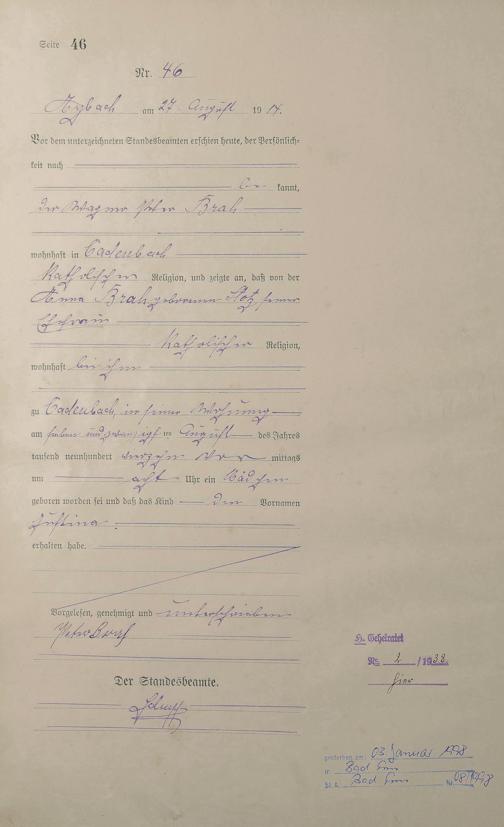 Seite 46
Nr. 46
Arzbach am 27. August 1914.
Vor dem unterzeichneten Standesbeamten erschien heute, der Persönlich-
keit nach
be kannt,
der Wagner Peter Brah
wohnhaft in Cadenbach
katholischer Religion, und zeigte an, daß von der
Anna Brah geborenen Stotz, seiner
Ehefrau
katholischer Religion,
wohnhaft bei ihm
zu Cadenbach, in seiner Wohnung
am sieben und zwanzigsten August des Jahres
tausend neunhundert vierzehn Vor mittags
um acht Uhr ein Mädchen
geboren worden sei und daß das Kind den Vornamen
Justina
erhalten habe.
Vorgelesen, genehmigt und unterschrieben
Peter Brah
Der Standesbeamte.
H. Geheiratet
Nr. 2 /1938
hier
gestorben am: 03. Januar 1998
in Bad Ems
St. A. Bad Ems Nr.